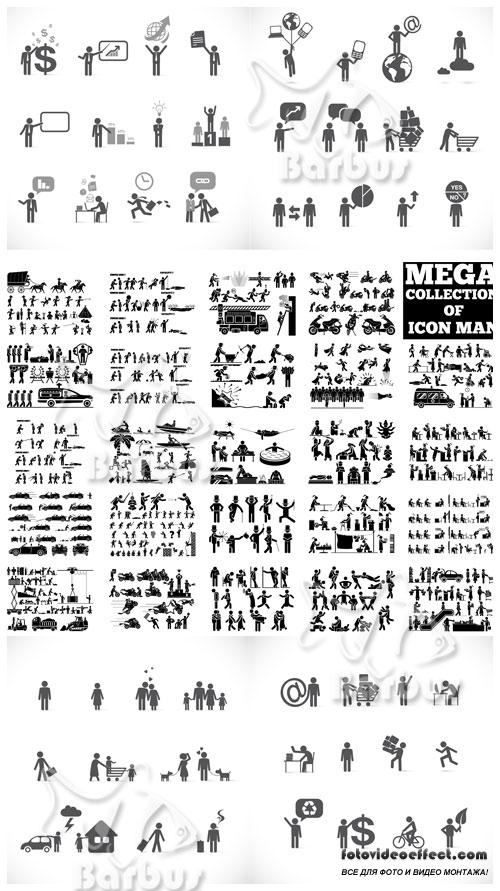 Barbus
YES
NO
MEGA
COLLECTION
OF
ICON MAN
Barbus
Barbus
Barbus
fotovideoeffect.com
ВСЕ ДЛЯ ФОТО И ВИДЕО МОНТАЖА!